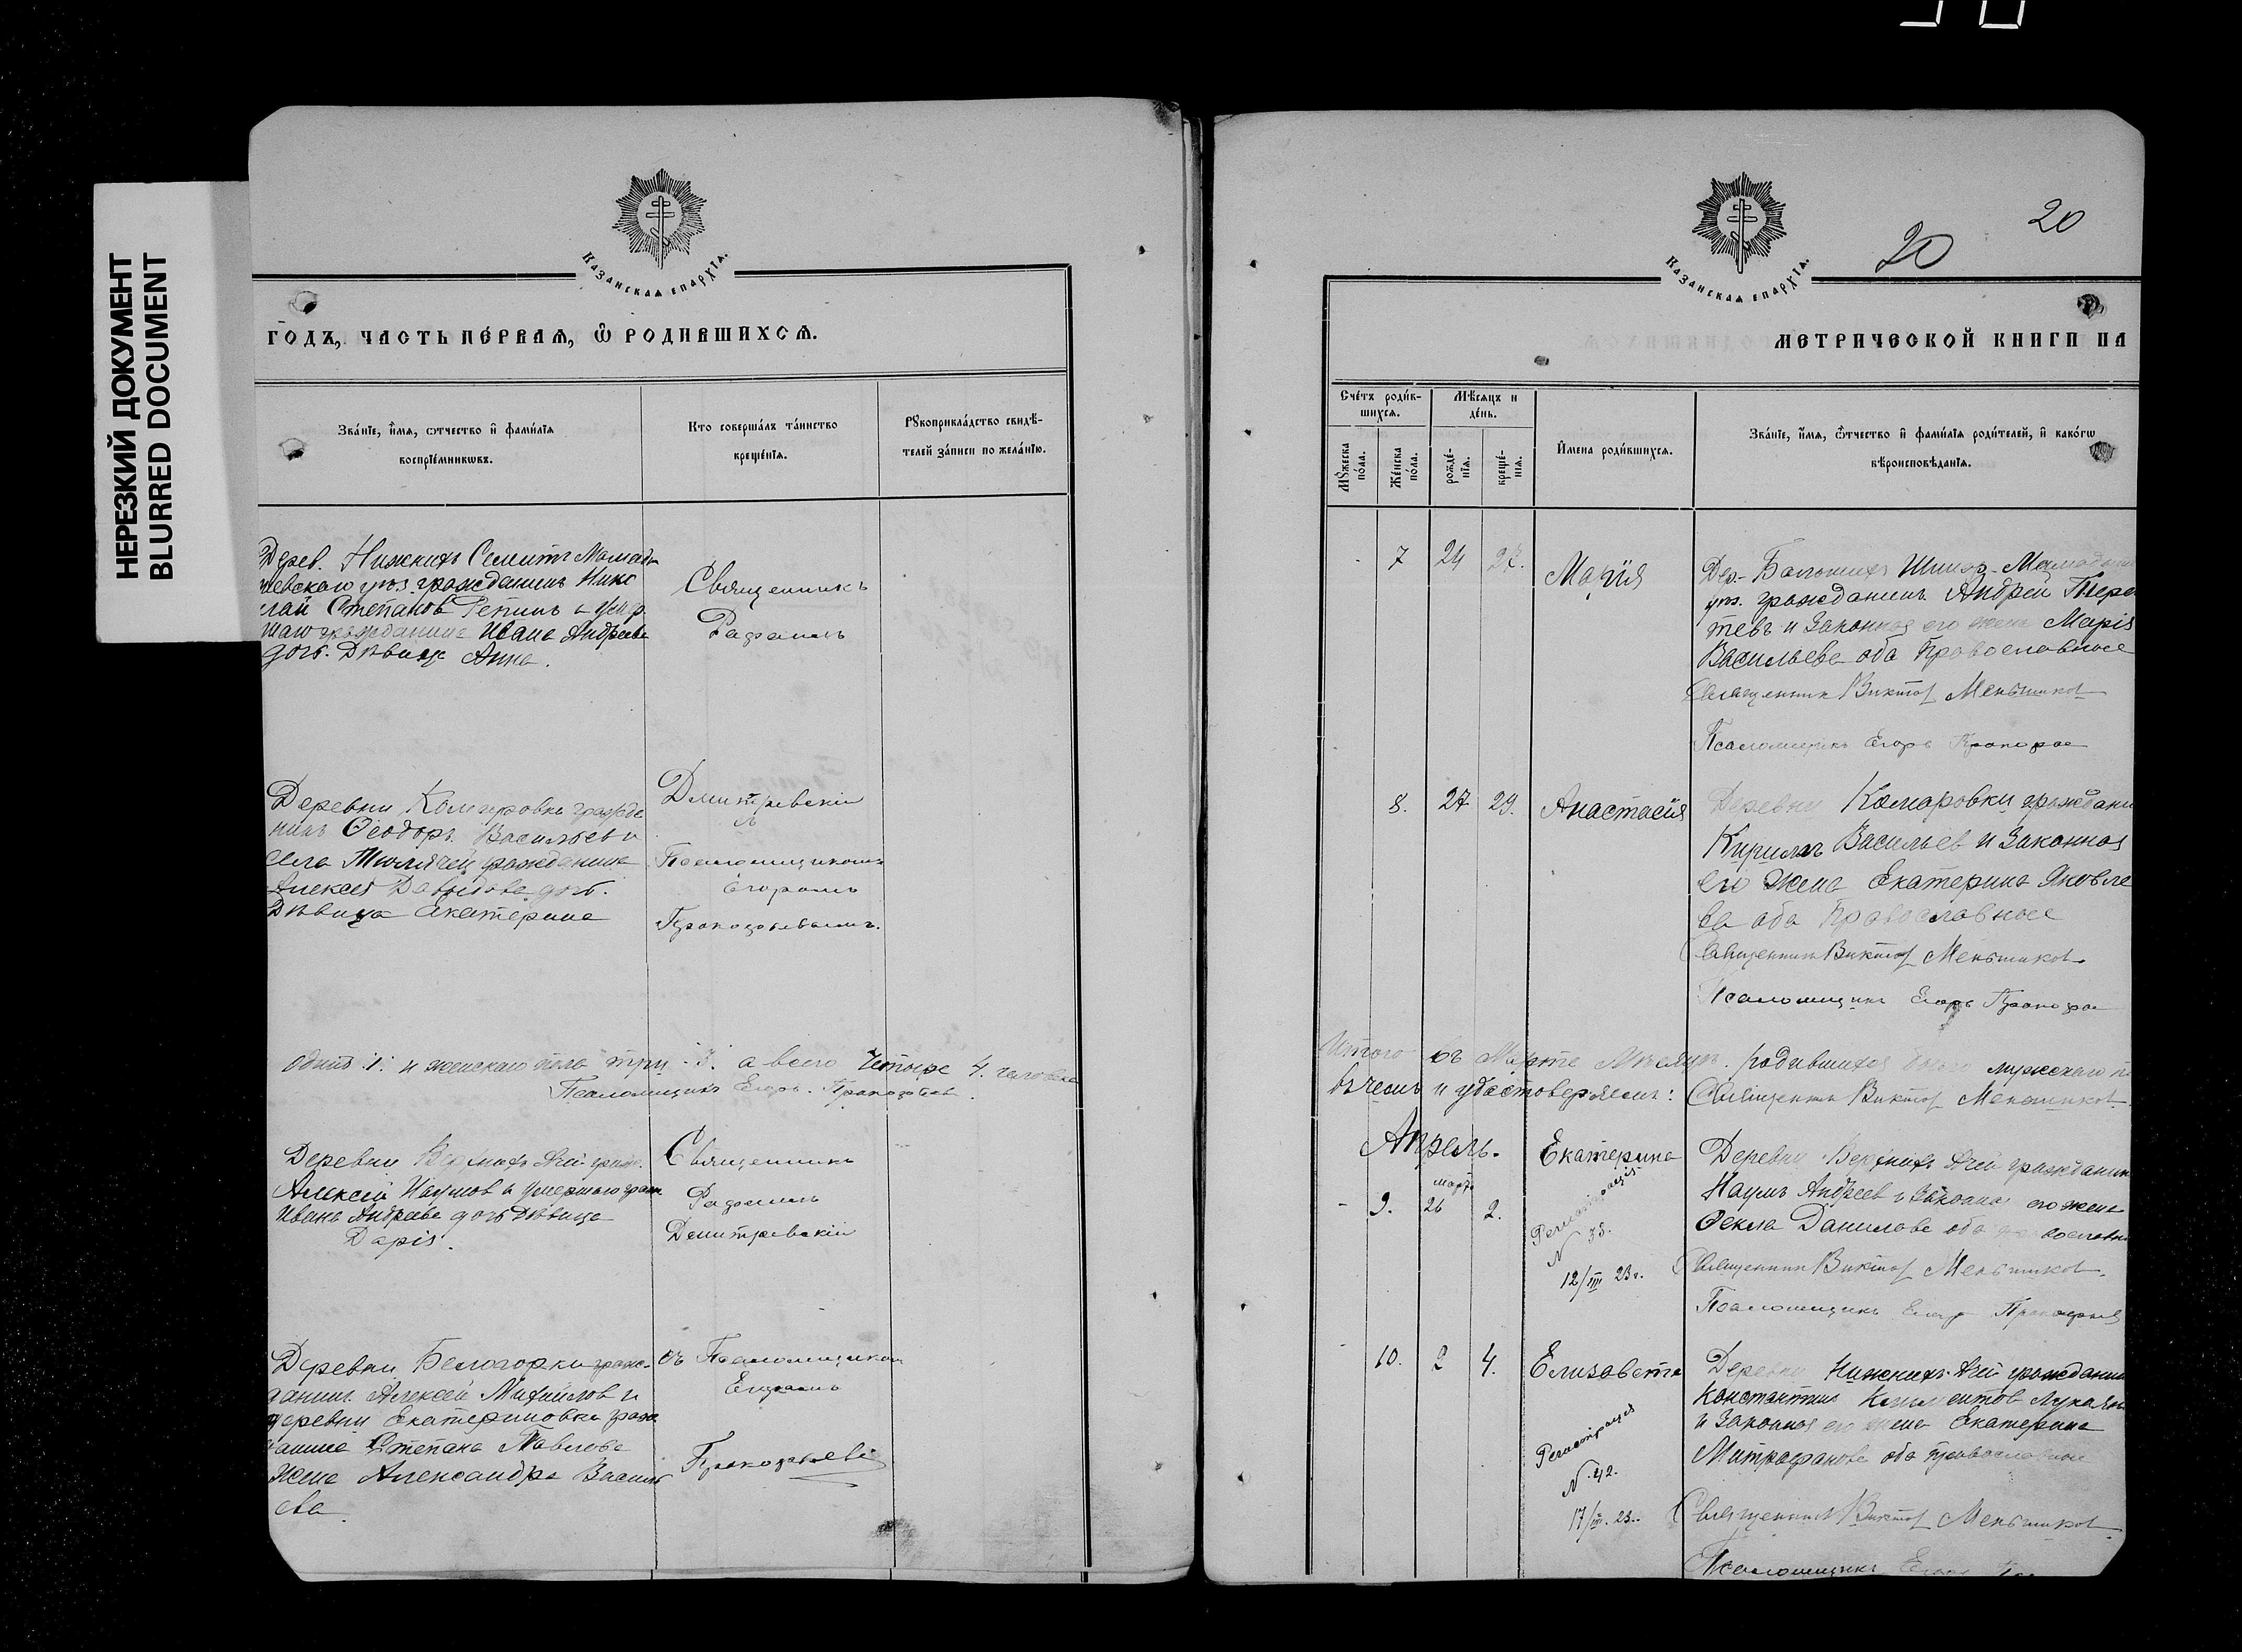 НЕРЕЗКИЙ ДОКУМЕНТ
BLURRED DOCUMENT
Казанская епархїа.
годъ, часть пе́рваѧ, ѡ҆ родившихсѧ.
Зва́нїе, и҆́мѧ, ѻтчество и҆ фами́лїѧ
воспрїе́мникѡвъ.
Кто соверша́лъ та́инство
креще́нїѧ.
Рꙋкоприкла́дство свидѣ́-
телей за́писи по жела́нїю.
Дерев. Нижнихъ
уѣз. гражданинъ Нико
лай Степанов Репинъ и умер
шаго гражданина Ивана Андреева
дочь. Дѣвица Анна.
Священникъ
Рафаилъ
Деревни Комаровки гражда
нинъ Ѳеодоръ Васильев и
села гражданина
Алексея Давыдова дочь.
Дѣвица Екатерина
Дмитревскій
съ
Псаломщикомъ
Егоромъ
Прокофьевымъ.
одинъ 1. и женскаго пола три 3. а всего четыре 4. человека
Псаломщикъ Егоръ Прокофьев.
Деревни Верхнихъ гражд.
Алексей Наумов и умершаго граж
Ивана Андреева дочь дѣвица
Дарія.
Священникъ
Рафаилъ
Дмитревскій
Деревни Белогорки граж-
данинъ Алексей Михайлов и
деревни Екатериновки граж
данина Степана Павлова
жена Александра Василь
ева.
съ Псаломщиком
Егоромъ
Прокофьевы
Казанская епархїа.
20
20
метрической книги на
Сче́тъ роди́в-
шихсѧ.
Мꙋ́жеска по́ла.
Же́нска по́ла.
Мѣ́сѧцъ и
де́нь.
рожде́-нїѧ.
креще́-нїѧ.
И҆мена роди́вшихсѧ.
Зва́нїе, и҆́мѧ, ѻ҆́тчество и҆ фами́лїѧ роди́телей, и҆ како́гѡ
вѣроисповѣ́данїѧ.
- 7 24 27. Марія
Дер. Большихъ
уѣз. гражданинъ Андрей Тере
тевъ и Законная его жена Марія
Васильева оба Православные
Священник Виктор Меньшиков
Псаломщикъ Егоръ Прокофье
8. 27 29. Анастасія
Деревни Комаровки граждани
Кирилъ Васильев и Законная
его жена Екатерина Яковле
ва оба Православные
Священник Виктор Меньшиков
Псаломщикъ Егоръ Прокофье
Итого въ Марте Месяце родившихся было мужскаго п
въ чемъ и удостоверяемъ: Священник Виктор Меньшиков
Апрель.
- 9. март 26 2. Екатерина
Регистрація
N 35.
12/III 23 г.
Деревни Верхнихъ гражданин
Наумъ Андреев и Законная его жена
Ѳекла Данилова оба православн
Священник Виктор Меньшиков.
Псаломщикъ Егор Прокофьев
- 10. 2 4. Елизавета
Регистрація
N. 42.
17/III. 23.
Деревни Нижнихъ гражданин
Константинъ Климентов
и Законная его жена Екатерина
Митрофанова оба православные
Священник Виктор Меньшиков.
Псаломщикъ Егор